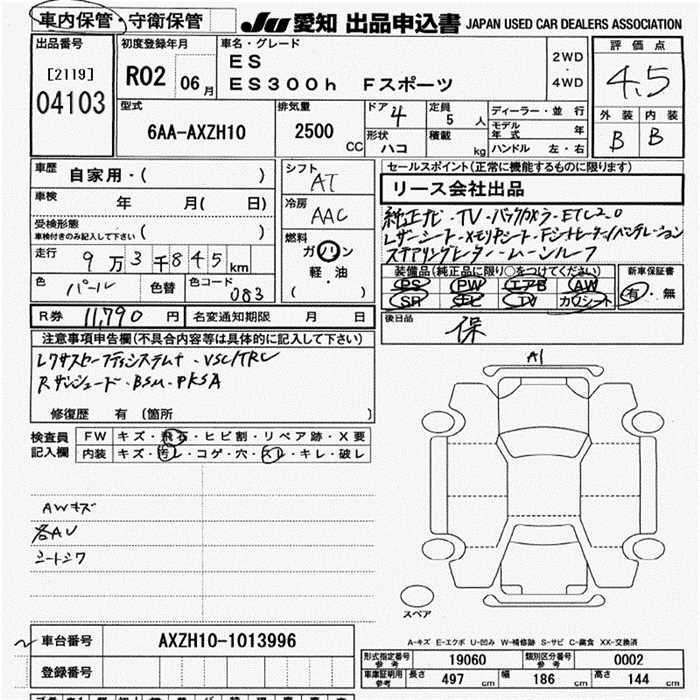 車内保管・守衛保管
JU 愛知 出品申込書 JAPAN USED CAR DEALERS ASSOCIATION
出品番号
[2119]
04103
初度登録年月
R02 06月
車名・グレード
ES
ES300h Fスポーツ
2WD
・
4WD
評価点
4.5
外装 内装
B B
型式
6AA-AXZH10
排気量
2500 CC
ドア 4
形状 ハコ
定員 5 人
積載 kg
ディーラー・並行
モデル年式 年
ハンドル 左・右
車歴 自家用・( )
車検 年 月( 日)
受検形態
車検付きのみ記入して下さい ( )
走行 9万3千845km
色 パール 色替 色コード 083
シフト AT
冷房 AAC
燃料 ガソリン
軽・油
( )
セールスポイント(正常に機能するものに限ります)
リース会社出品
純正ナビ・TV・バックカメラ・ETC2.0
レザーシート・メモリーシート・Fシートヒーター/ベンチレーション
ステアリングヒーター・ムーンルーフ
装備品(純正品に限り○をつけてください)
PS PW エアB AW
SR ナビ TV カワシート
新車保証書
有・無
後日品
保
R券 11,790 円 名変通知期限 月 日
注意事項申告欄(不具合内容等は具体的に記入して下さい)
レクサスセーフティシステム+・VSC/TRC
Rサンシェード・BSM・PKSA
修復歴 有 (箇所 )
検査員記入欄
FW キズ・飛石・ヒビ割・リペア跡・X要
内装 キズ・汚レ・コゲ・穴・スレ・キレ・破レ
AWキズ
各AU
シートシワ
A1
スペア
A-キズ E-エクボ U-凹み W-補修跡 S-サビ C-腐食 XX-交換済
車台番号 AXZH10-1013996
登録番号
形式指定番号 参考 19060 類別区分番号 参考 0002
車庫証明用 参考 長さ 497 cm 幅 186 cm 高さ 144 cm